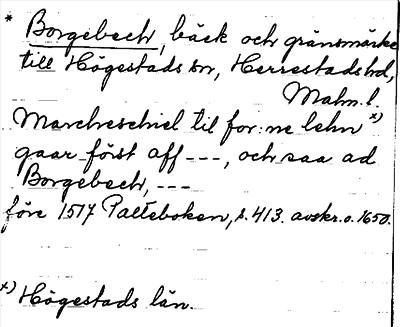 * Borgebech, bäck och gränsmärke
till Högestads sn, Herrestads hd,
Malm. l.
Marcheschiel til for:ne lehn x)
gaar först aff ---, och saa ad
Borgebech, ---
före 1517 Palteboken, s. 413. avskr. o. 1650.
x) Högestads län.